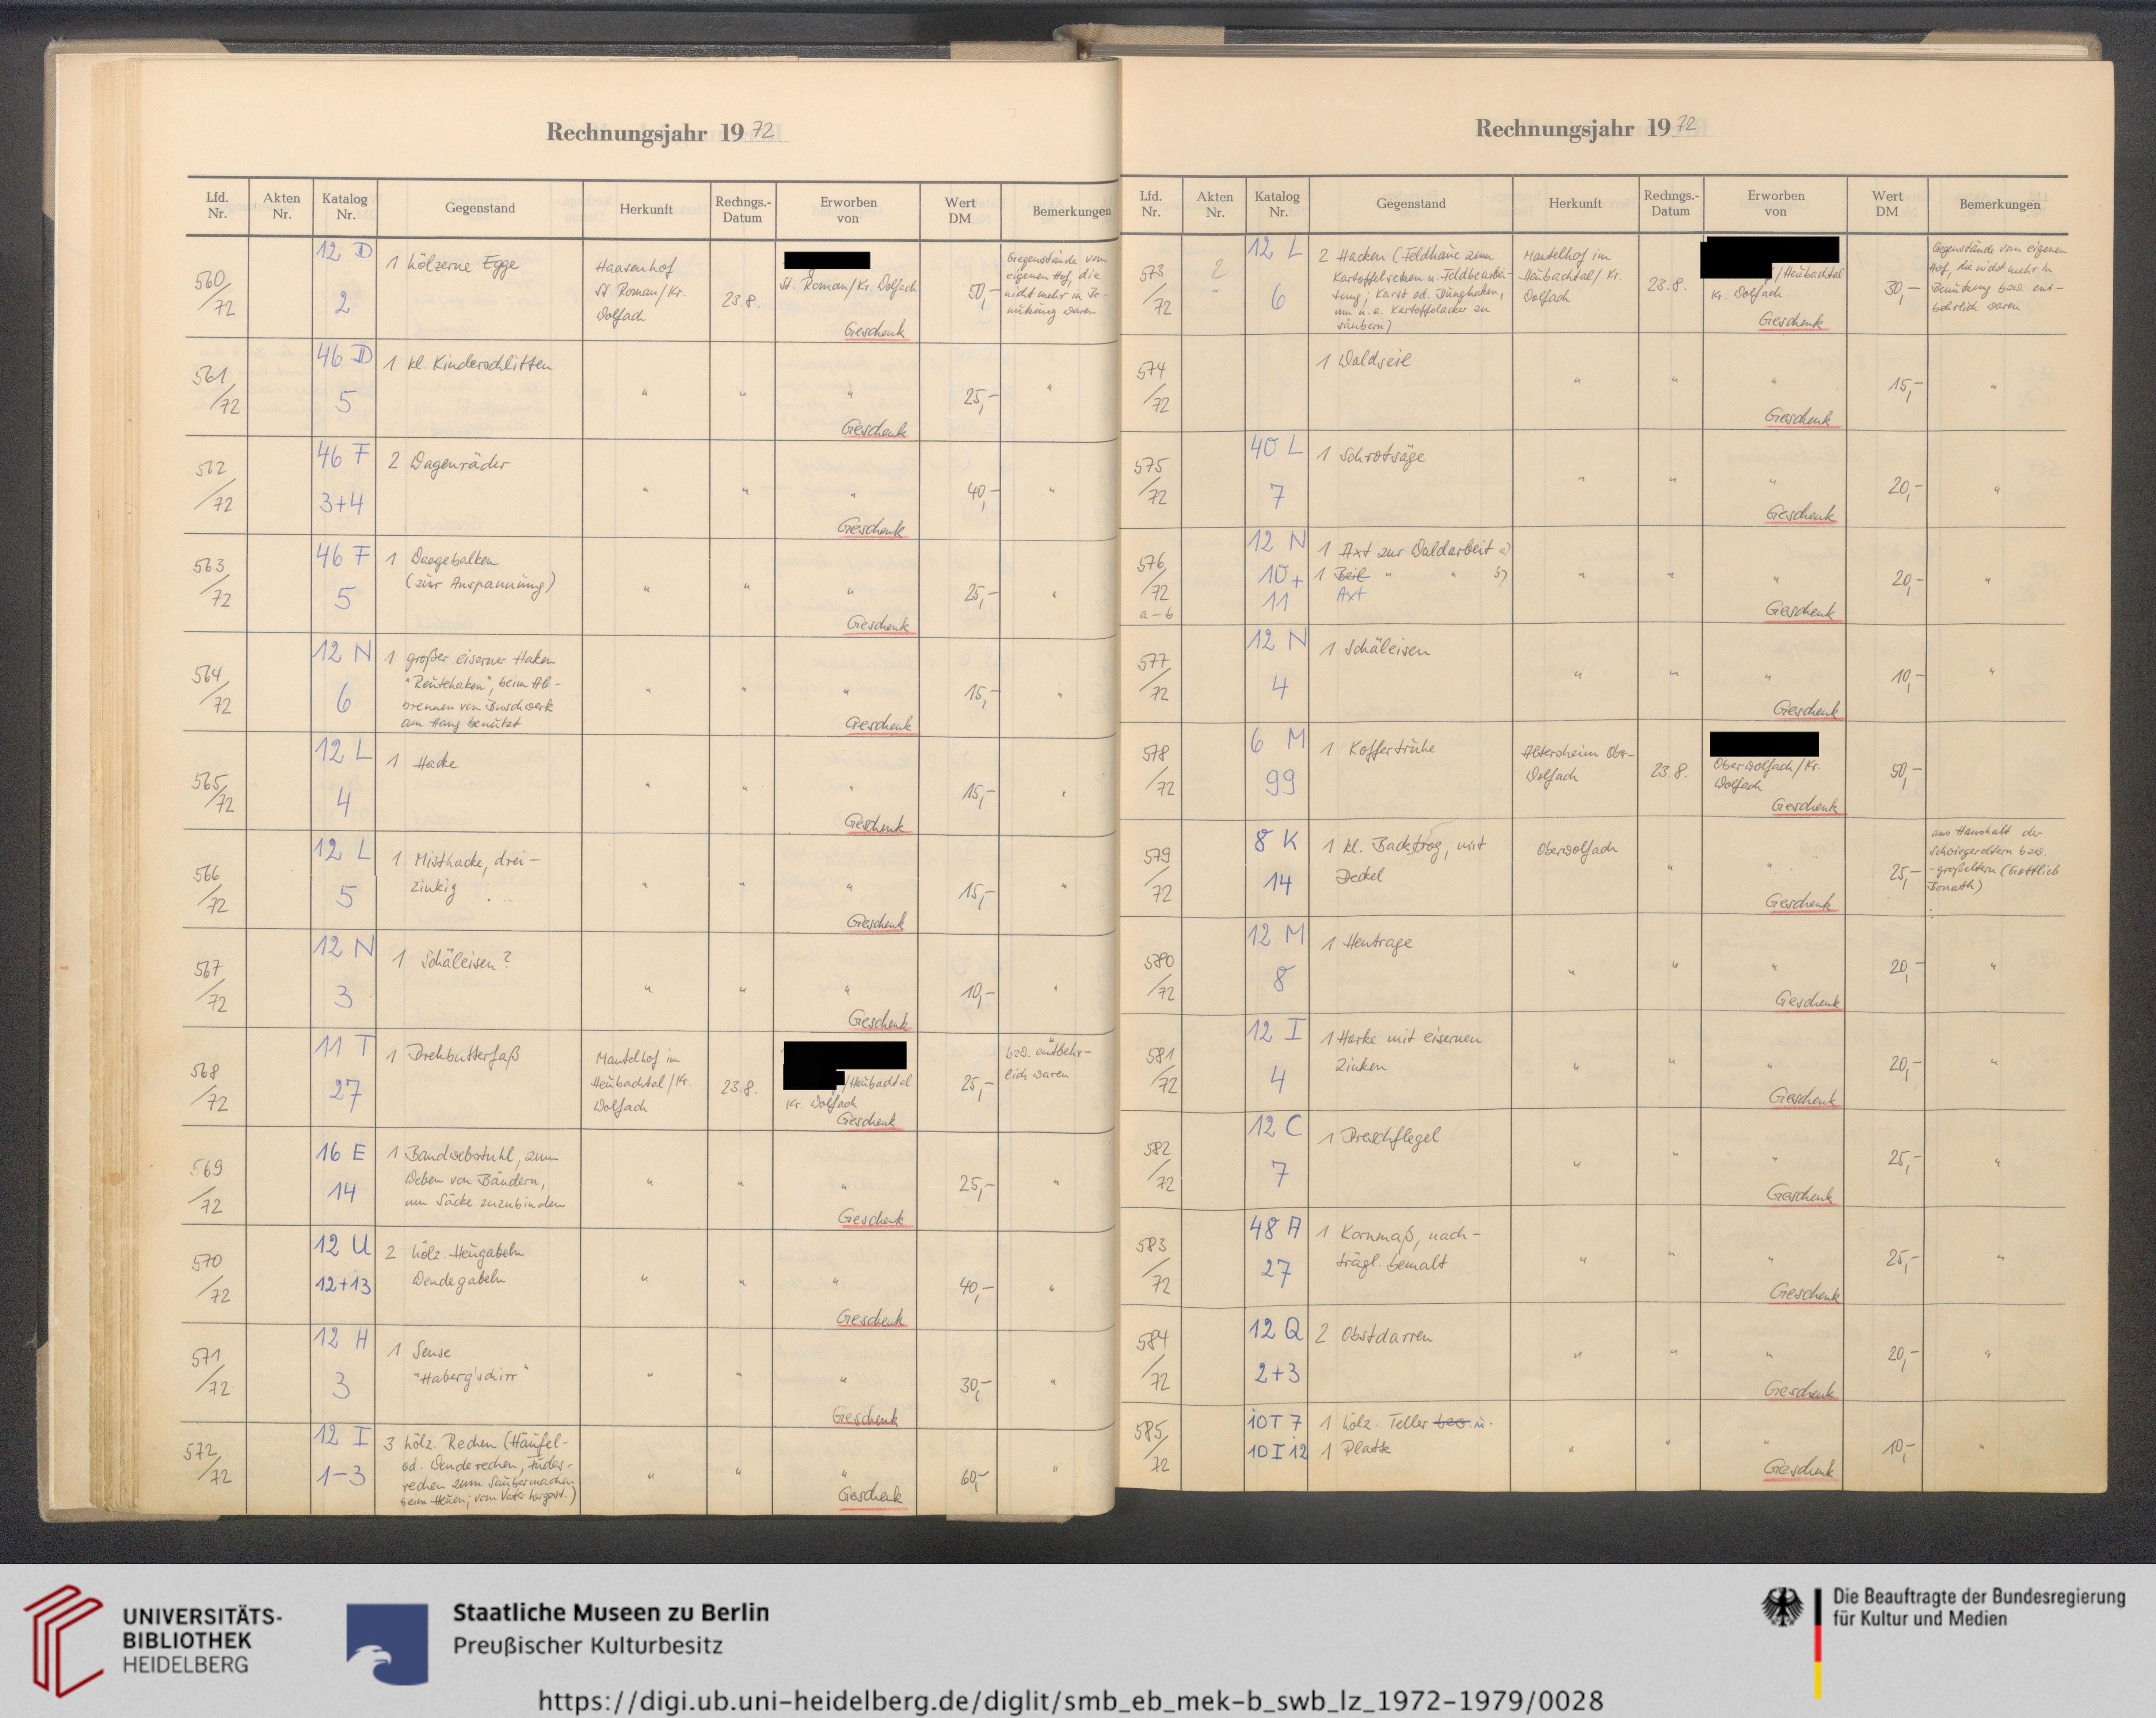 Rechnungsjahr 1972
Lfd. Nr.
Akten Nr.
Katalog Nr.
Gegenstand
Herkunft
Rechngs.-Datum
Erworben von
Wert DM
Bemerkungen
560/72
12 D
2
1 hölzerne Egge
Haasenhof
St. Roman/Kr.
Wolfach
23.8.
St. Roman/Kr. Wolfach
Geschenk
50,-
Gegenstände vom
eigenen Hof, die
nicht mehr in Be-
nützung waren
561/72
46 D
5
1 kl. Kinderschlitten
" " "
Geschenk
25,-
"
562/72
46 F
3+4
2 Wagenräder
" " "
Geschenk
40,-
"
563/72
46 F
5
1 Waagebalken
(zur Anspannung)
" " "
Geschenk
25,-
"
564/72
12 N
6
1 großer eiserner Haken
"Reutehaken", beim Ab-
brennen von Buschwerk
am Hang benützt
" " "
Geschenk
15,-
"
565/72
12 L
4
1 Hacke
" " "
Geschenk
15,-
"
566/72
12 L
5
1 Misthacke, drei-
zinkig
" " "
Geschenk
15,-
"
567/72
12 N
3
1 Schäleisen?
" " "
Geschenk
10,-
"
568/72
11 T
27
1 Drehbutterfaß
Mantelhof im
Heubachtal/Kr.
Wolfach
23.8.
/Heubachtal
Kr. Wolfach
Geschenk
25,-
bzw. entbehr-
lich waren
569/72
16 E
14
1 Bandwebstuhl, zum
Weben von Bändern,
um Säcke zuzubinden
" " "
Geschenk
25,-
"
570/72
12 U
12+13
2 hölz. Heugabeln
Wendegabeln
" " "
Geschenk
40,-
"
571/72
12 H
3
1 Sense
"Haberg'schirr"
" " "
Geschenk
30,-
"
572/72
12 I
1-3
3 hölz. Rechen (Häufel-
od. Wenderechen, Fuder-
rechen zum Saubermachen
beim Heuen; vom Vater hergest.)
" " "
Geschenk
60,-
"
Rechnungsjahr 1972
Lfd. Nr.
Akten Nr.
Katalog Nr.
Gegenstand
Herkunft
Rechngs.-Datum
Erworben von
Wert DM
Bemerkungen
573/72
2
12 L
6
2 Hacken (Feldhaue zum
Kartoffelsetzen u. Feldbearbei-
tung; Karst od. Dunghaken,
um u.a. Kartoffelacker zu
säubern)
Mantelhof im
Heubachtal/Kr.
Wolfach
23.8.
/Heubachtal
Kr. Wolfach
Geschenk
30,-
Gegenstände vom eigenen
Hof, die nicht mehr in
Benützung bzw. ent-
behrlich waren
574/72
1 Waldseil
" " "
Geschenk
15,-
"
575/72
40 L
7
1 Schrotsäge
" " "
Geschenk
20,-
"
576/72
a-b
12 N
10+
11
1 Axt zur Waldarbeit a)
1 Beil " " b)
Axt
" " "
Geschenk
20,-
"
577/72
12 N
4
1 Schäleisen
" " "
Geschenk
10,-
"
578/72
6 M
99
1 Koffertruhe
Altersheim Ober-
Wolfach
23.8.
Oberwolfach/Kr.
Wolfach
Geschenk
50,-
579/72
8 K
14
1 kl. Backtrog, mit
Deckel
Oberwolfach
" "
Geschenk
25,-
aus Haushalt der
Schwiegereltern bzw.
-großeltern (Gottlieb
Bonath)
580/72
12 M
8
1 Heutrage
" " "
Geschenk
20,-
"
581/72
12 I
4
1 Harke mit eisernen
Zinken
" " "
Geschenk
20,-
"
582/72
12 C
7
1 Dreschflegel
" " "
Geschenk
25,-
"
583/72
48 A
27
1 Kornmaß, nach-
trägl. bemalt
" " "
Geschenk
25,-
"
584/72
12 Q
2+3
2 Obstdarren
" " "
Geschenk
20,-
"
585/72
10 T 7
10 I 12
1 hölz. Teller bzw. u.
1 Platte
" " "
Geschenk
10,-
"
UNIVERSITÄTS-
BIBLIOTHEK
HEIDELBERG
Staatliche Museen zu Berlin
Preußischer Kulturbesitz
Die Beauftragte der Bundesregierung
für Kultur und Medien
https://digi.ub.uni-heidelberg.de/diglit/smb_eb_mek-b_swb_lz_1972-1979/0028